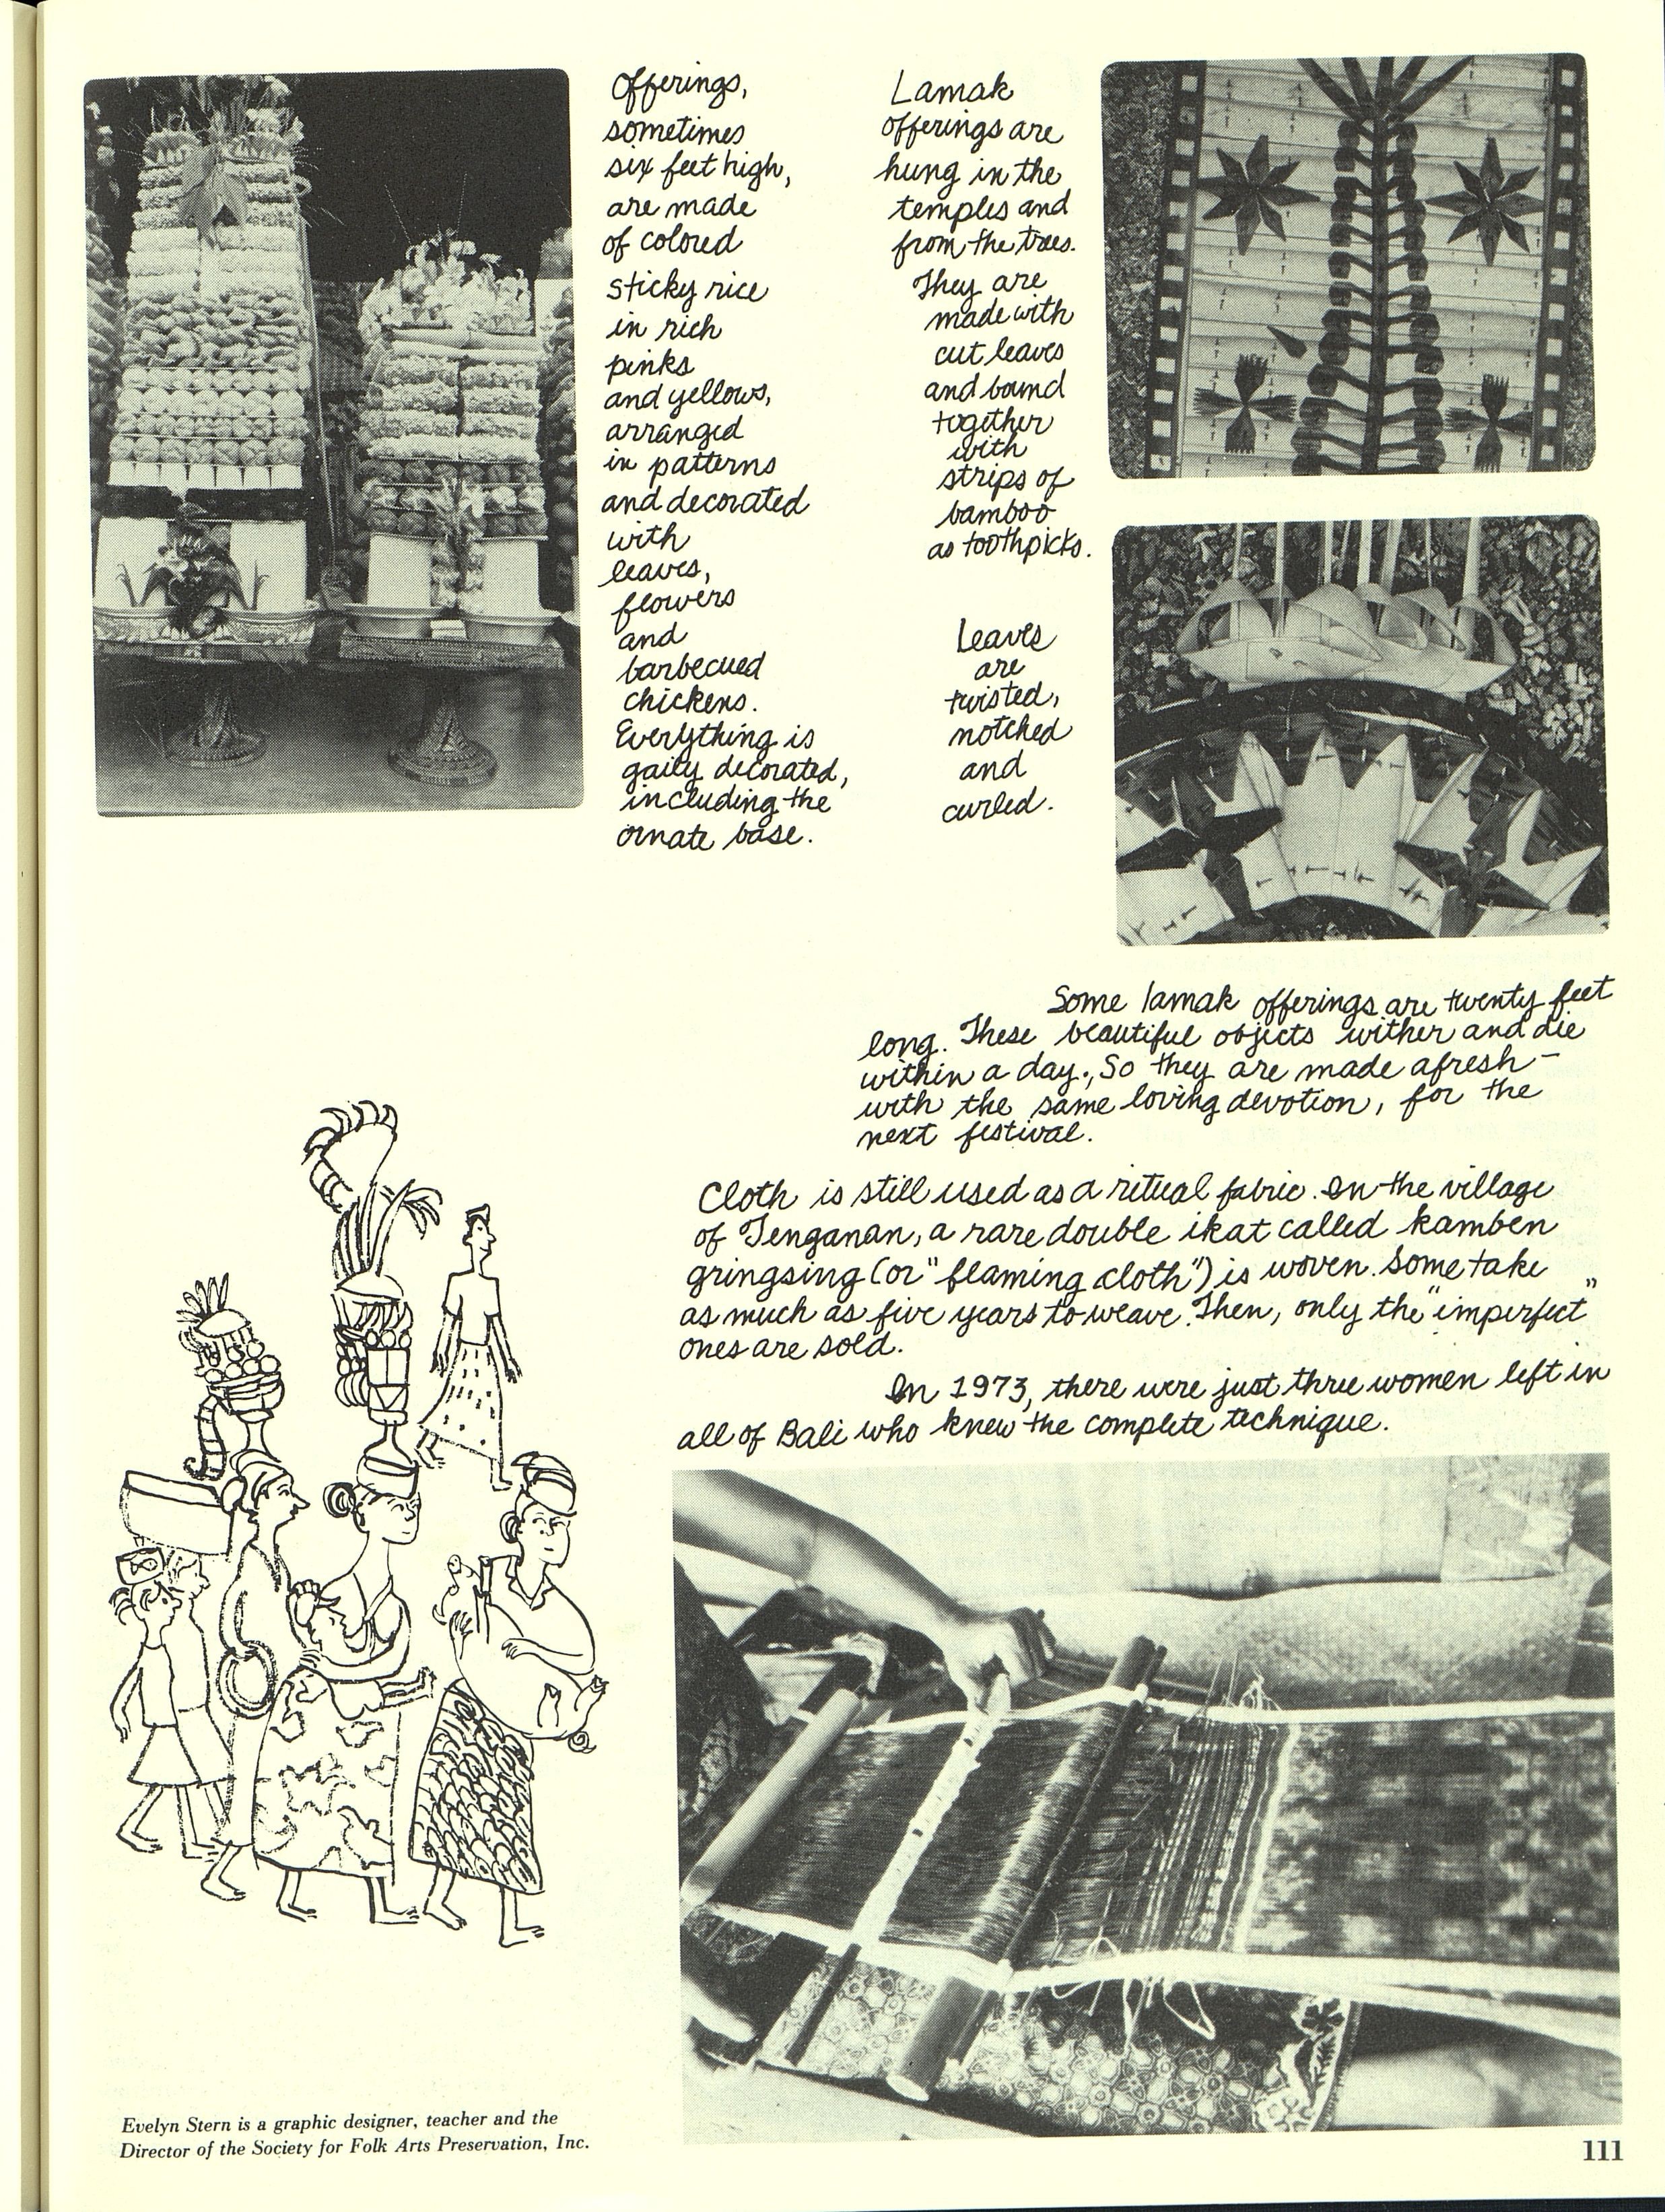 Offerings,
sometimes
six feet high,
are made
of colored
sticky rice
in rich
pinks
and yellows,
arranged
in patterns
and decorated
with
leaves,
flowers
and
barbecued
chickens.
Everything is
gaily decorated,
including the
ornate base.
Lamak
offerings are
hung in the
temples and
from the trees.
They are
made with
cut leaves
and bound
together
with
strips of
bamboo
as toothpicks.
Leaves
are
twisted,
notched
and
curled.
Some lamak offerings are twenty feet
long. These beautiful objects wither and die
within a day., So they are made afresh –
with the same loving devotion, for the
next festival.
Cloth is still used as a ritual fabric. In the village
of Tenganan, a rare double ikat called kamben
gringsing (or "flaming cloth") is woven. Some take
as much as five years to weave. Then, only the "imperfect"
ones are sold.
In 1973, there were just three women left in
all of Bali who knew the complete technique.
Evelyn Stern is a graphic designer, teacher and the
Director of the Society for Folk Arts Preservation, Inc.
111